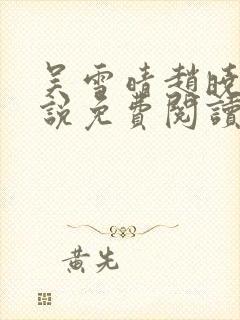 吴雪晴趙曉
説免費閱讀
黃先